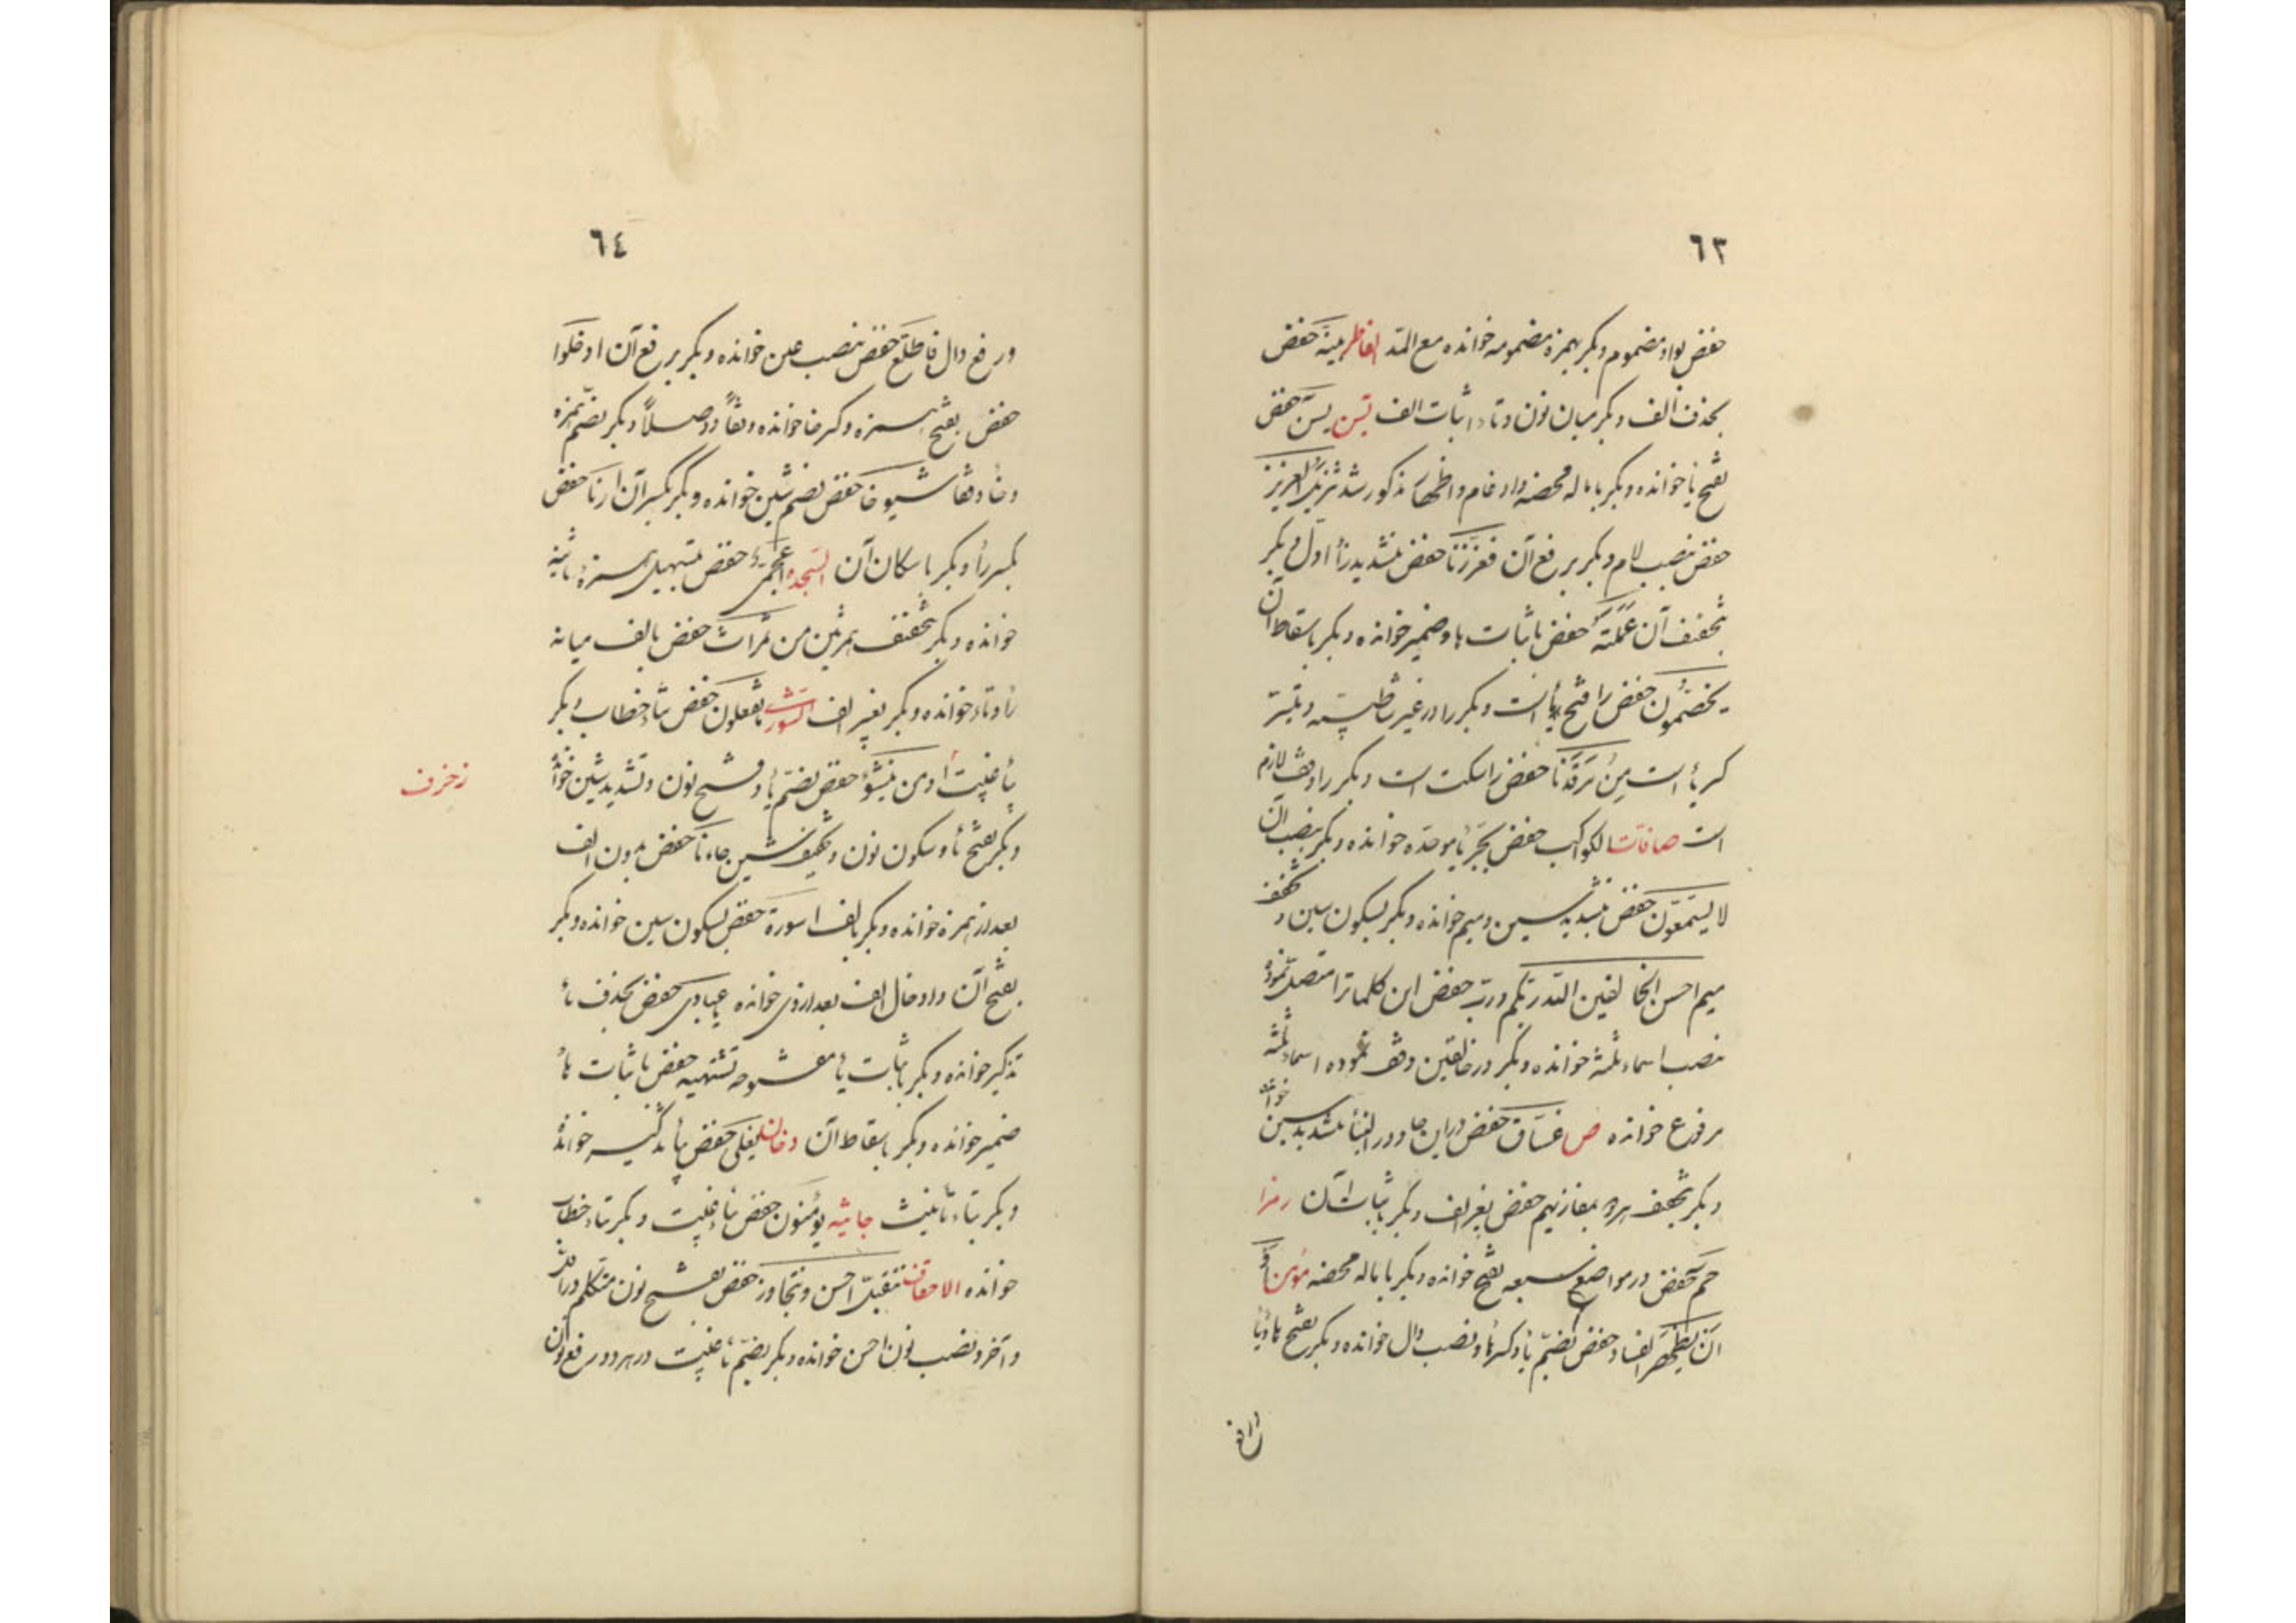 ٦٣
حفص بواو مضموم و بکر بهمزه مضمومه خوانده مع المد الفاطر بینه حفص
بحذف الف و بکر میان نون و تاء اثبات الف یس یس حفص
بفتح یا خوانده و بکر باماله محضه و ادغام و اظهار مذکور شد تنزیل العزیز
حفص بنصب لام و بکر برفع آن فعززنا حفص بتشدید زأ اول و بکر
بتخفیف آن عملته حفص باثبات هاء ضمیر خوانده و بکر باسقاط آن
یخصمون حفص را فتح یأ است و بکر را در غیر
کسر یأ است من مرقدنا حفص را سکت است و بکر را وقف لازم
است صافات الکواکب حفص بجر باء موحده خوانده و بکر بنصب آن
لا یسمعون حفص بتشدید سین و میم خوانده و بکر بسکون سین و تخفیف
میم احسن الخالقین الله ربکم و رب حفص این کلمات را متصل نموده
بنصب اسماء ثلثه خوانده و بکر در خالقین وقف نموده اسماء ثلثه
مرفوع خوانده ص غساق حفص در این جا و در النبأ بتشدید سین خوانده
و بکر بتخفیف هر دو بمفازتهم حفص بغیر الف و بکر باثبات آن زمرا
حم حفص در مواضع سبعه بفتح خوانده و بکر باماله محضه مؤمن او
ان یظهر الفساد حفص بضم یأ و کسر هاء و نصب دال خوانده و بکر بفتح یاء و هأ
٦٤
و رفع دال فاطلع حفص بنصب عین خوانده و بکر برفع آن ادخلوا
حفص بفتح همزه و کسر خا خوانده وقفاً و وصلاً و بکر بضم همزه
و خأ وقفا شیوخا حفص بضم شین خوانده و بکر بکسر آن ارنا حفص
بکسر رأ و بکر باسکان آن السجده أعجمی حفص بتسهیل همزه ثانیه
خوانده و بکر بتحقیق همزتین من ثمرات حفص بالف میانه
رأ و تاء خوانده و بکر بغیر الف الشوری تفعلون حفص بتاء خطاب و بکر
بیأ غیبت أو من ینشؤ حفص بضم یأ و فتح نون و تشدید شین خوانده
زخرف
و بکر بفتح یأ و سکون نون و تخفیف شین جاءنا حفص بدون الف
بعد از همزه خوانده و بکر بالف اسورة حفص بسکون سین خوانده و بکر
بفتح آن و ادخال الف بعد از وی خوانده یا عبادی حفص بحذف یأ
تذکیر خوانده و بکر باثبات یأ مفتوحه تشتهیه حفص باثبات هأ
ضمیر خوانده و بکر باسقاط آن دخان یغلی حفص بیأ تذکیر خوانده
و بکر بتاء تأنیث جاثیه یؤمنون حفص بیاء غیبت و بکر بتاء خطاب
خوانده الاحقاف نتقبل احسن و نتجاوز حفص بفتح نون متکلم در اول
و آخر و نصب نون احسن خوانده و بکر بضم یأ غیبت در هر دو و رفع نون